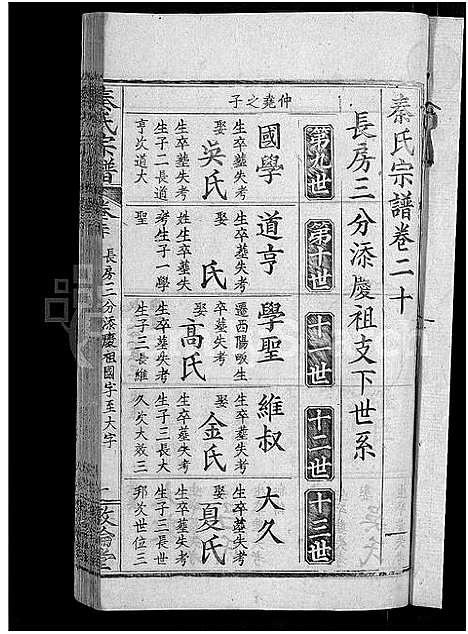 秦氏宗譜卷二十
長房三分添慶祖支下世系
第九世
第十世
十一世
十二世
十三世
仲堯之子
國學
生卒墓失考
娶吳氏
生卒墓失考
生子二長道
亨次道大
道亨
生卒墓失考
娶 氏
姓生卒墓失
考生子一學
聖
學聖
遷西陽畈生
卒墓失考
娶高氏
生卒墓失考
生子三長維
維叔
生卒墓失考
娶金氏
生卒墓失考
生子三長大
久次大效三
大久
生卒墓失考
娶夏氏
生卒墓失考
生子三長世
邦次世位三
秦氏宗譜
卷二十
長房三分添慶祖國字至大字
一
敦倫堂